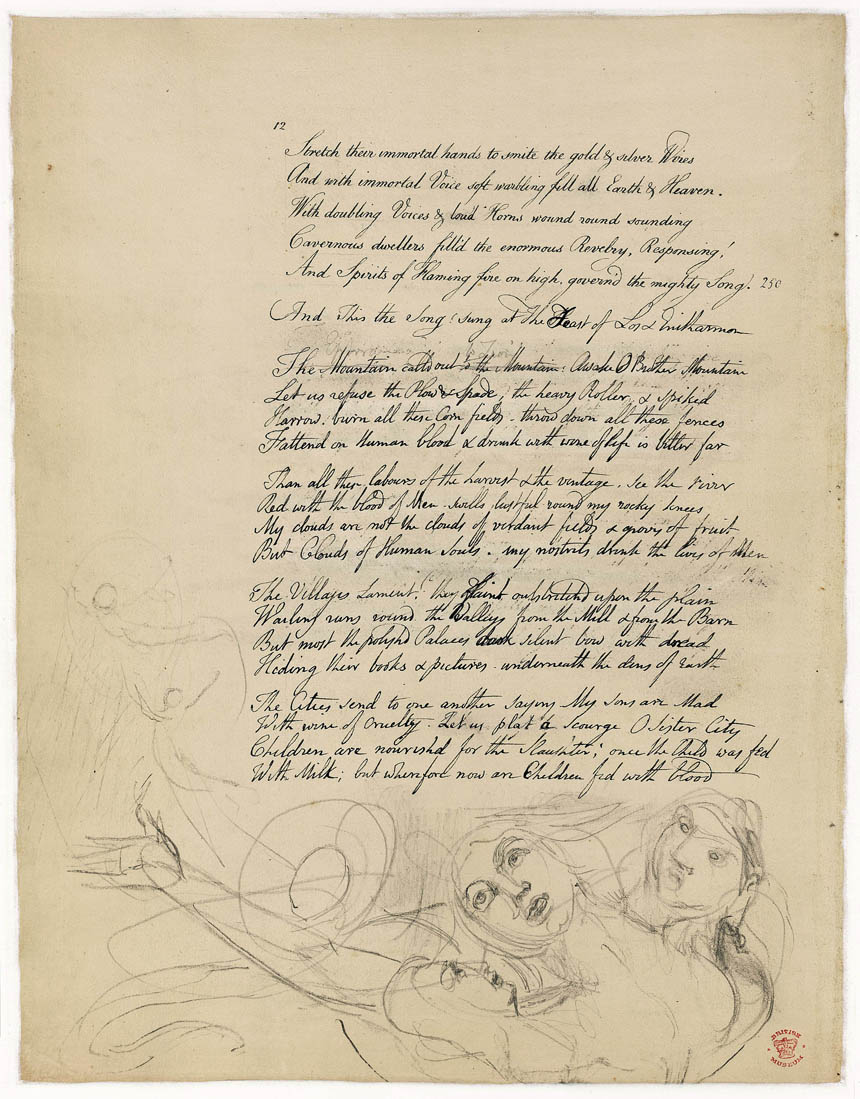 12
Stretch their immortal hands to smite the gold & silver Wires
And with immortal Voice soft warbling fill all Earth & Heaven.
With doubling Voices & loud Horns wound round sounding
Cavernous dwellers fill'd the enormous Revelry, Responsing!
And Spirits of Flaming fire on high, govern'd the mighty Song. 250
And This the Song! sung at The Feast of Los & Enitharmon
The Mountain calld out to the Mountain: Awake O Brother Mountain
Let us refuse the Plow & Spade, the heavy Roller & spiked
Harrow. burn all these Corn fields. throw down all these fences
Fattend on Human blood & drunk with wine of life is better far
Than all these labours of the harvest & the vintage. See the river
Red with the blood of Men. swells lustful round my rocky knees
My clouds are not the clouds of verdant fields & groves of fruit
But Clouds of Human Souls. my nostrils drink the lives of Men
The Villages Lament. they faint outstretchd upon the plain
Wailing runs round the Valleys from the Mill & from the Barn
But most the polishd Palaces dark silent bow with dread
Hiding their books & pictures. underneath the dens of Earth
The Cities send to one another saying My sons are Mad
With wine of cruelty. Let us plat a scourge O Sister City
Children are nourishd for the Slaughter; once the Child was fed
With Milk; but wherefore now are Children fed with blood
BRITISH MUSEUM